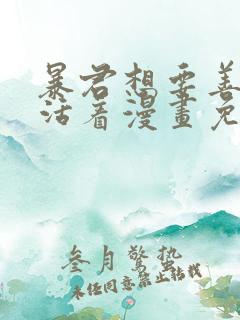 暴君想要善
活着漫畫免
叁月驚蟄
未经同意禁止转载